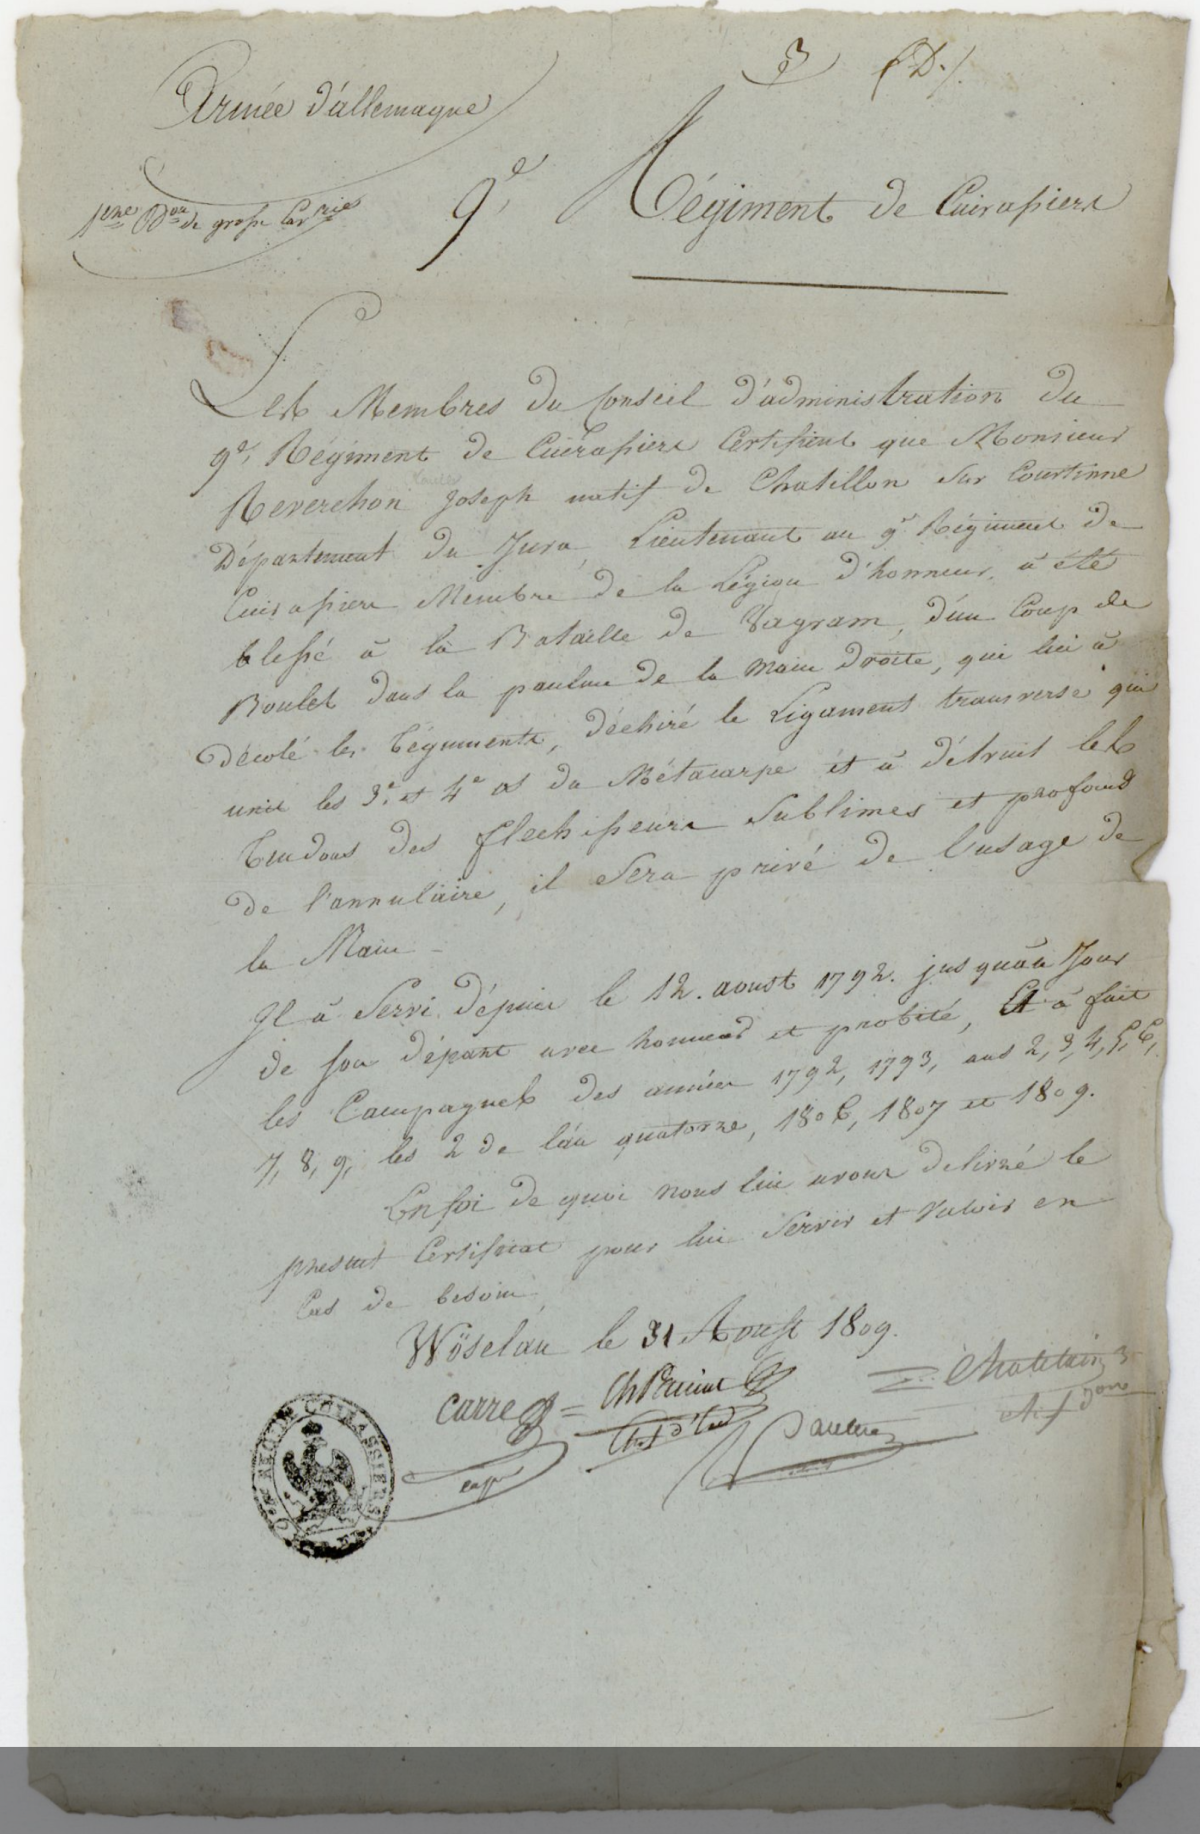 3 (D.)
Armée d'allemagne
1ere Don de grosse Cavrie
9e, Régiment de Cuirassiers
Les Membres du Conseil d'administration du
9e, Régiment de Cuirassiers Certifient que Monsieur
Reverchon Joseph natif de Chatillon Sur Courtinne
Département du Jura, Lieutenant au 9e Régiment de
Cuirassiers Membre de la Légion d'honneur, à été
blessé à la Bataille de Vagram, d'un Coup de
Boulet dans la paulme de la main droite, qui lui à
décolé les téguments, déchiré le Ligament transverse qui
unit les 3e et 4e os du Métacarpe et à détruit les
tendons des flechisseurs Sublimes et profond
de l'annulaire, il Sera privé de l'usage de
la Main
Il à Servi dépuis le 12. aoust 1792. jusqu'au Jour
de son départ avec honneur et probité, Et à fait
les Campagnes des années 1792, 1793, ans 2, 3, 4, 5, 6,
7, 8, 9, les 2 de l'an quatorze, 1806, 1807 et 1809.
En foi de quoi nous lui avons delivré le
présent Certificat pour lui Servir et Valoir en
Cas de besoin,
Wöselau le 31 Aoust 1809.
Carre
Chatelain
Chef d'Esd
cap
9me REGIMt CUIRASSIERS